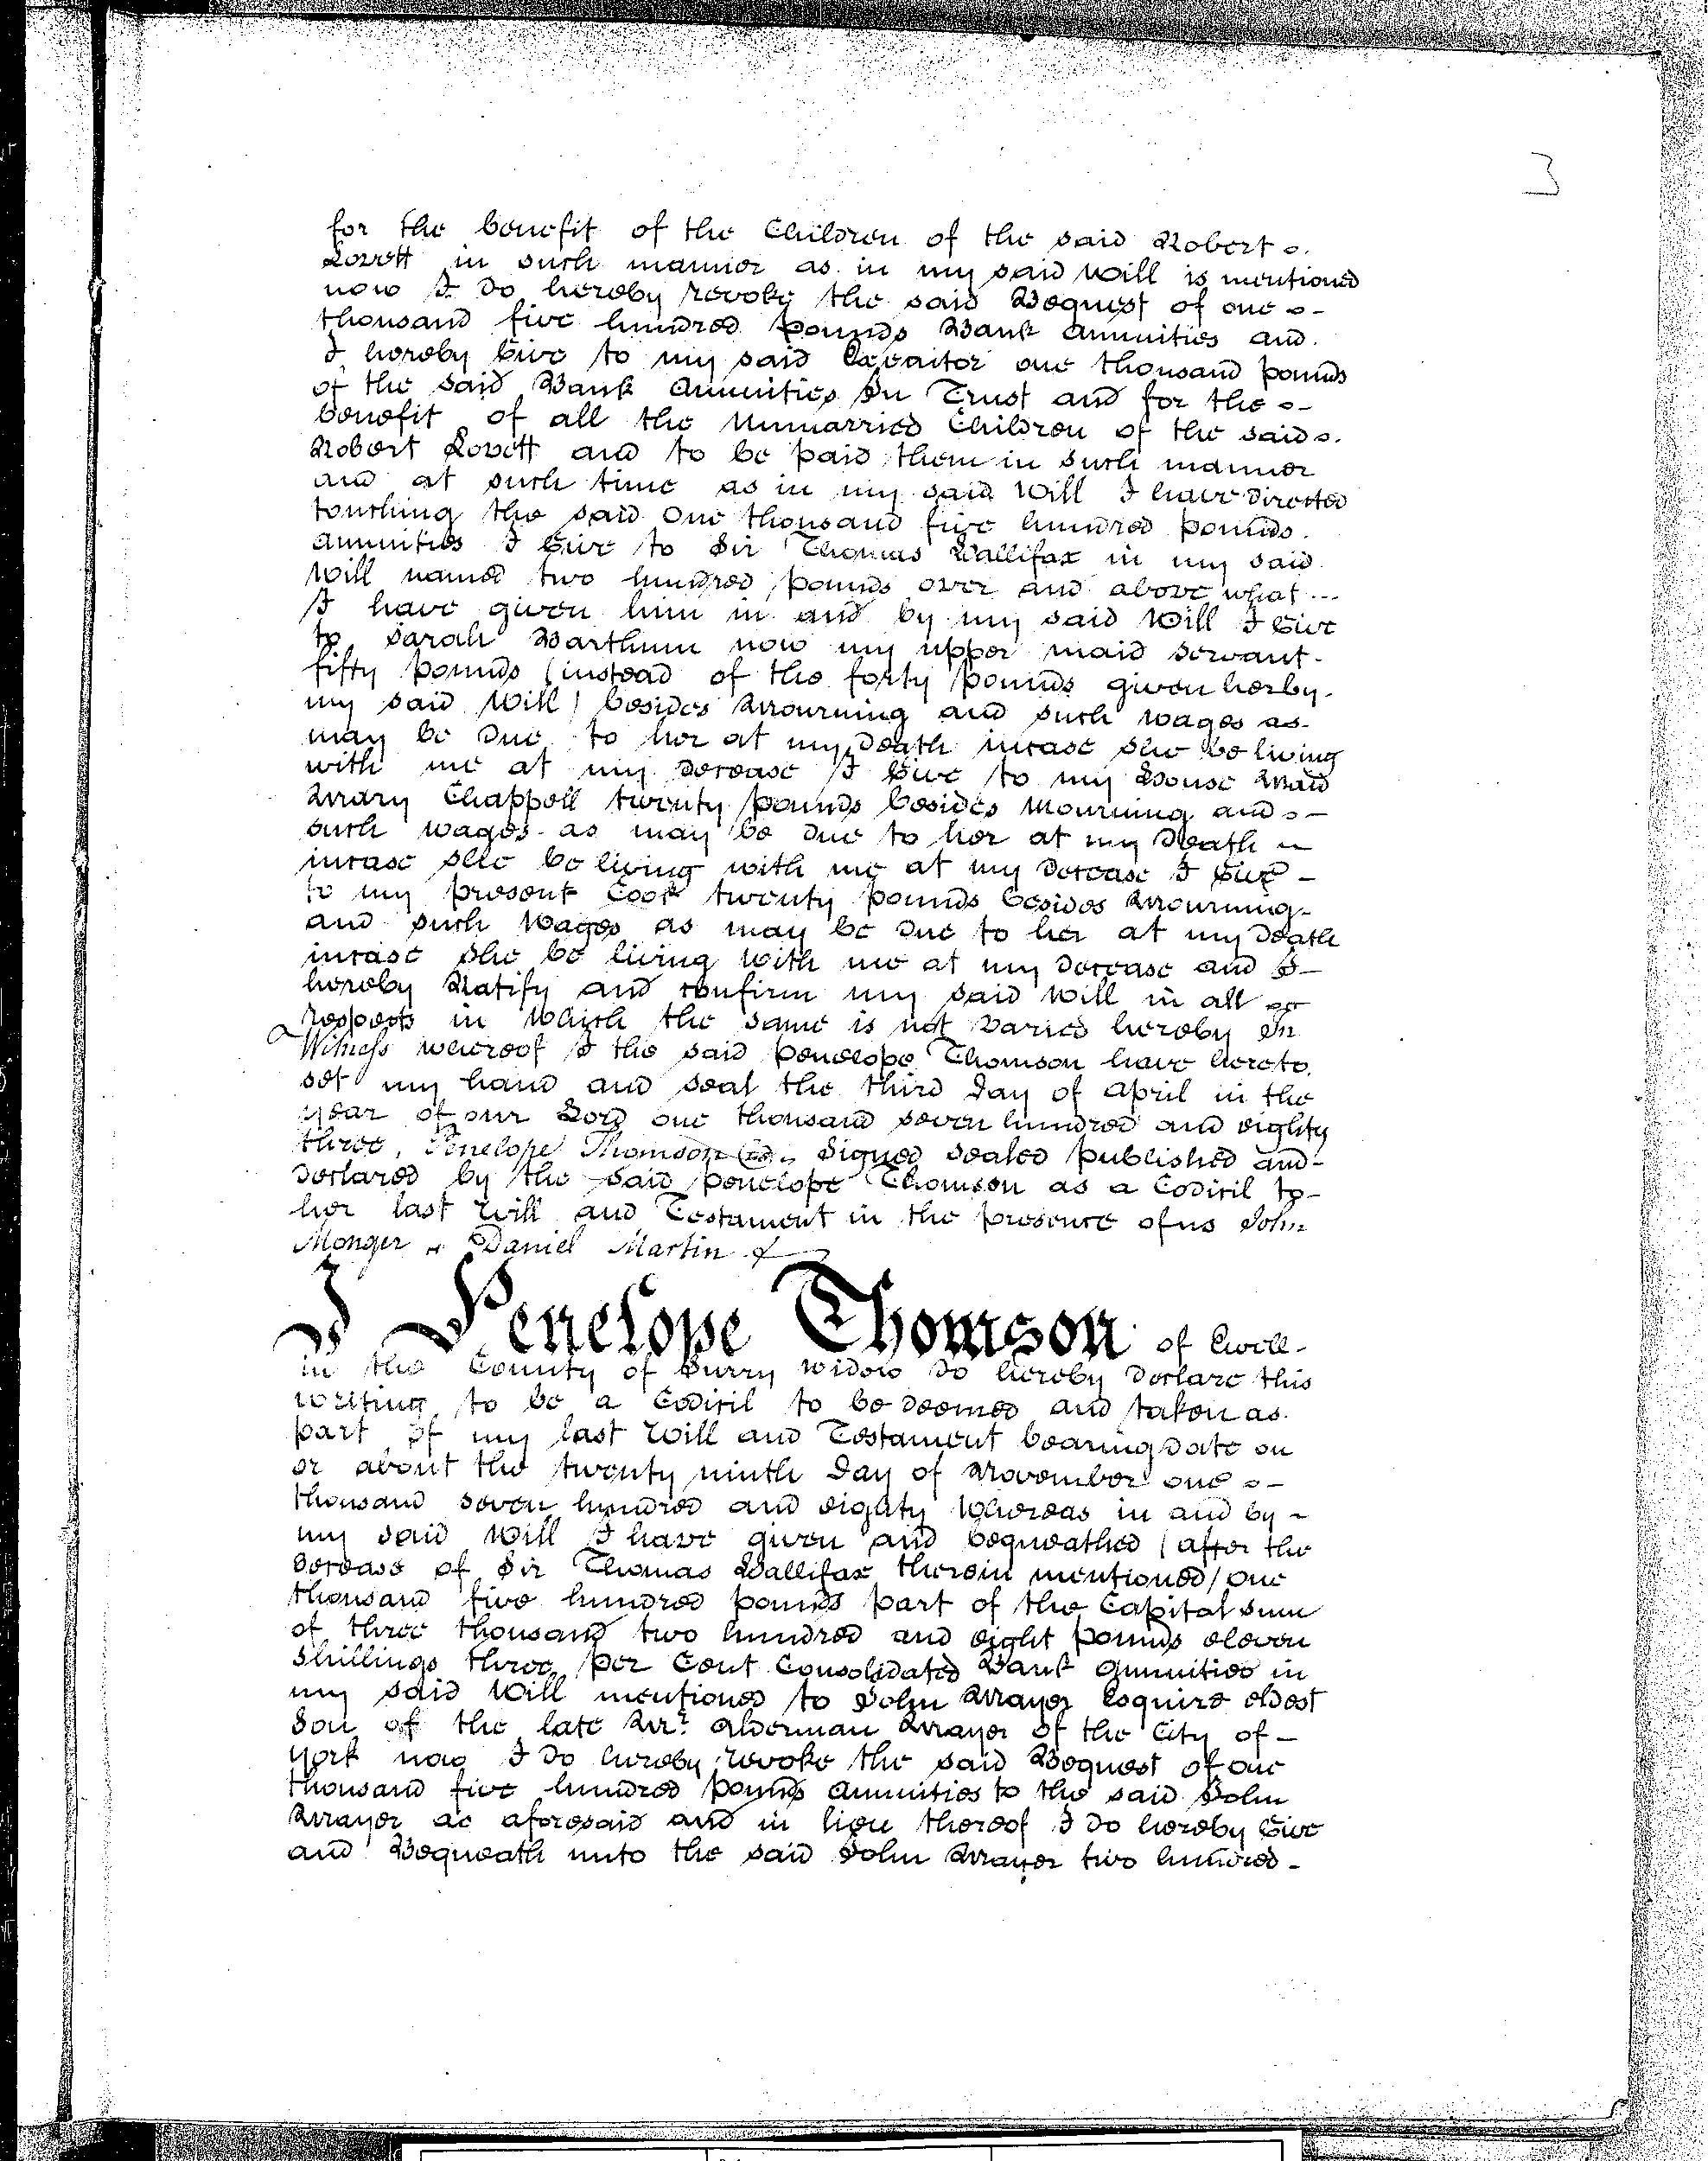 3
for the benefit of the Children of the said Robert
Lovett in such manner as in my said Will is mentioned
now I do hereby revoke the said Bequest of one
thousand five hundred pounds Bank Annuities and
I hereby Give to my said Executor one thousand pounds
of the said Bank Annuities In Trust and for the
benefit of all the Unmarried Children of the said
Robert Lovett and to be paid them in such manner
and at such time as in my said Will I have directed
touching the said One thousand five hundred pounds
Annuities I Give to Sir Thomas Hallifax in my said
Will named two hundred pounds over and above what
I have given him in and by my said Will I Give
to Sarah Barthum now my upper maid servant
fifty pounds (instead of the forty pounds given her by
my said Will) besides Mourning and such wages as
may be due to her at my Death incase she be living
with me at my decease I Give to my House Maid
Mary Chappell twenty pounds besides Mourning and
such wages as may be due to her at my Death
incase she be living with me at my decease I Give
to my present Cook twenty pounds besides Mourning
and such Wages as may be due to her at my Death
incase she be living with me at my decease and I
hereby Ratify and confirm my said Will in all
respects in which the same is not varied hereby In
Witness whereof I the said Penelope Thomson have hereto
set my hand and seal the third day of April in the
year of our Lord one thousand seven hundred and eighty
three, Penelope Thomson LS Signed sealed published and
declared by the said Penelope Thomson as a Codicil to
her last Will and Testament in the presence of us John
Monger Daniel Martin
I Penelope Thomson of Ewell
in the County of Surry widow do hereby declare this
writing to be a Codicil to be deemed and taken as
part of my last Will and Testament bearing date on
or about the twenty ninth day of November one
thousand seven hundred and eighty Whereas in and by
my said Will I have given and bequeathed (after the
decease of Sir Thomas Hallifax therein mentioned) one
thousand five hundred pounds part of the Capital sum
of three thousand two hundred and eight pounds eleven
shillings three per Cent Consolidated Bank Annuities in
my said Will mentioned to John Mayer Esquire eldest
Son of the late Mr. Alderman Mayer of the City of
York now I do hereby revoke the said Bequest of one
thousand five hundred pounds Annuities to the said John
Mayer as aforesaid and in lieu thereof I do hereby Give
and Bequeath unto the said John Mayer two hundred